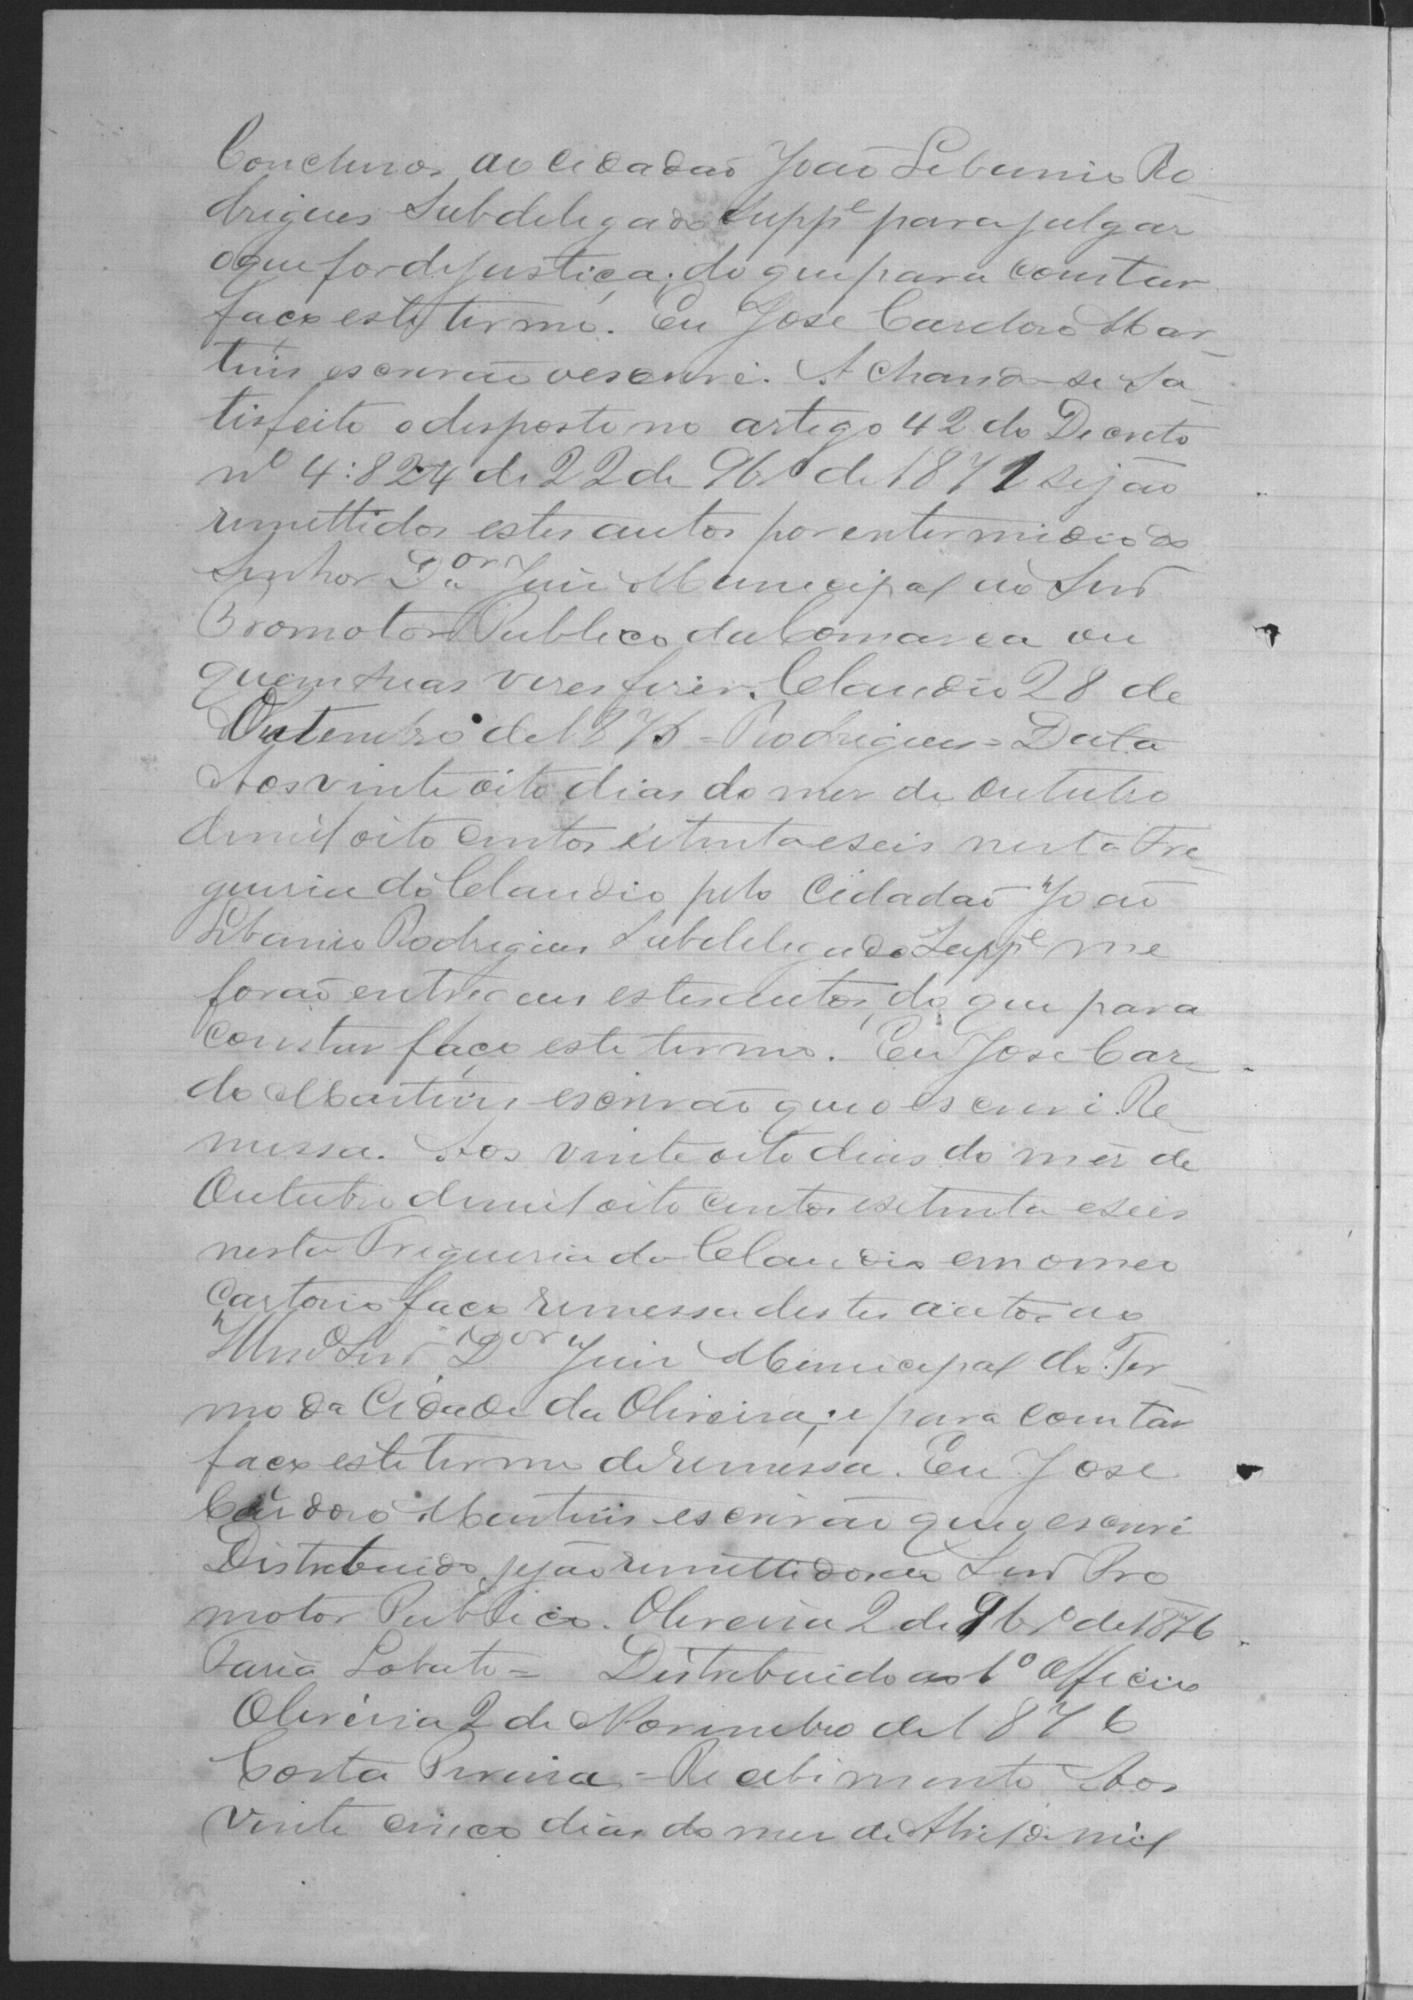 Conclusos ao Cidadão João Libanio Ro
drigues Subdelegado Suppe para julgar
o que for de justiça, do que para constar
faço este termo. Eu Jose Cardoso Mar_
tins escrivão o escrevi. Achando-se sa_
tisfeito o desposto no artego 42 do Decreto
nº 4:824 de 22 de 9bro de 1871 sejão
remettidos estes autos por entermedio do
Senhor Dor Juis Municipal ao Snr
Promotor Publico da Comarca ou
quem suas veses fizer. Claudio 28 de
Outembro de 1876 = Rodrigues = Data
Aos vinte oito dias do mes de Outubro
de mil oito centos setenta e seis nesta Fre_
guesia do Claudio pelo Cidadão João
Libanio Rodrigues Subdelegado Suppe me
forão entregues estes autos, do que para
constar faço este termo. Eu Jose Car_
do Martins escrivão que o escrevi. Re_
messa. Aos vinte oito dias do mes de
Outubro de mil oito centos e setenta e seis
nesta Freguesia do Claudio em o meu
Cartorio faço remessa destes autos ao
Illmo Snr Dor Juis Municipal do Ter_
mo da Cidade da Oliveira; e para constar
faço este termo de remessa. Eu Jose
Cardoso Martins escrivão que o escrevi
Distribuido, sejão remettidos ao Snr Pro
motor Publico. Oliveira 2 de 9bro de 1876
Faria Lobato = Distribuido ao 1º Officio
Oliveira 2 de Novembro de 1876
Costa Pereira = Recebimento Aos
vinte cinco dias do mes de Abril de mil